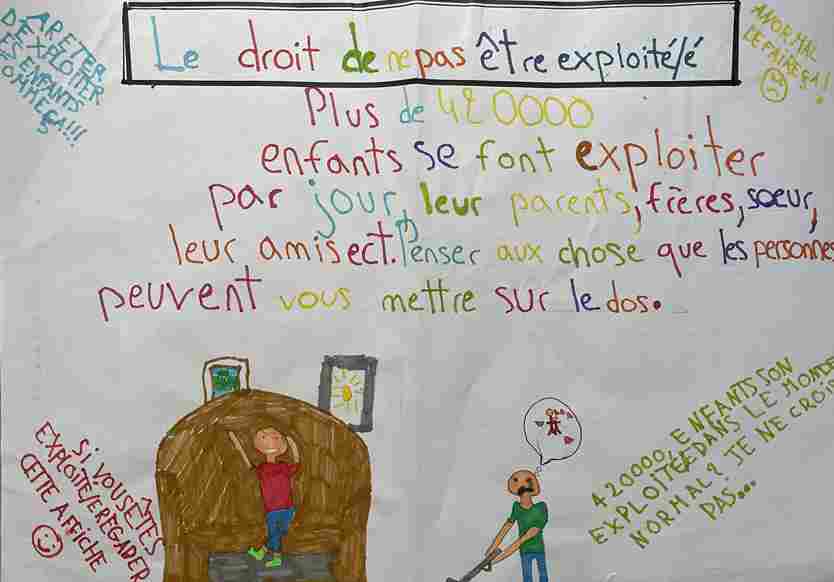 Le droit de ne pas être exploité/é
ARETER
D'EXPLOITER
ES ENFANTS
OMME ÇA!!!
ANORMAL
DE FAIRE ÇA!
Plus de 420000
enfants se font exploiter
par jour, leur parents, frères, soeur,
leur amis ect. Penser aux chose que les personnes
peuvent vous mettre sur le dos.
SI VOUS ÊTES
EXPLOITÉ/E REGADER
CETTE AFFICHE
420000, ENFANTS SON
EXPLOITÉE DANS LE MONDE
NORMAL? JE NE CROIS
PAS...